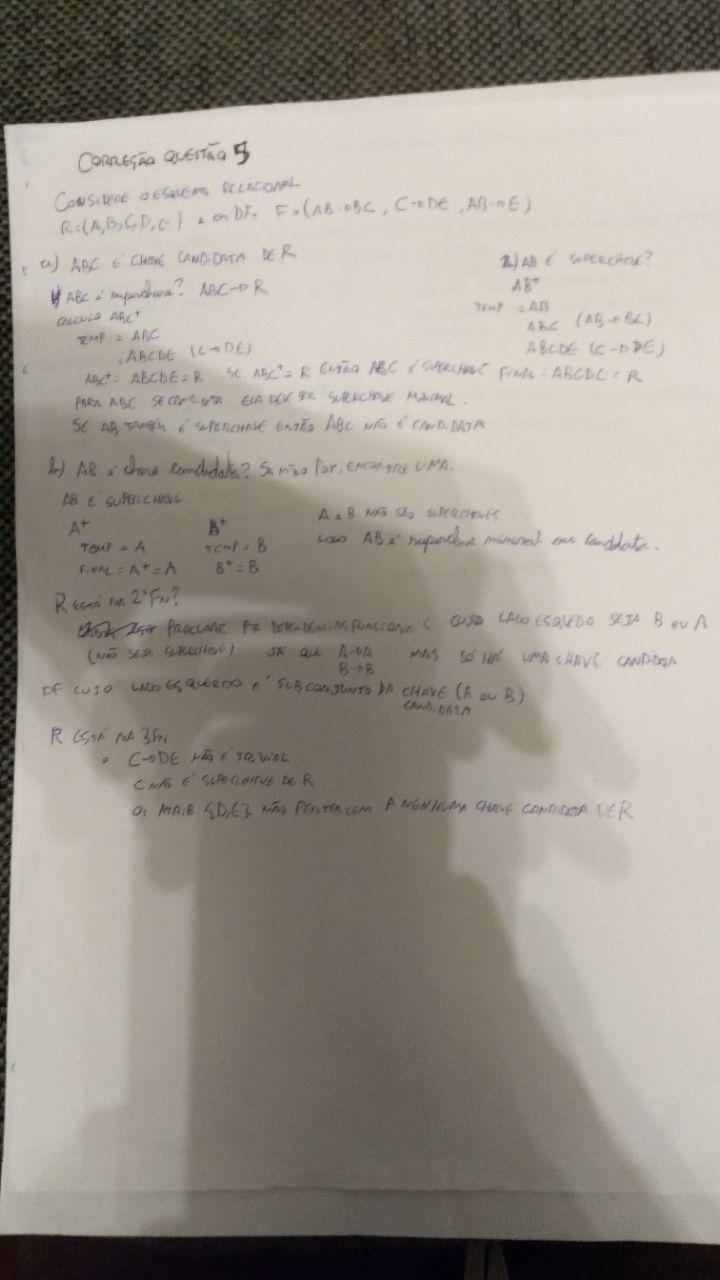 CORREÇÃO QUESTÃO 5
CONSIDERE O ESQUEMA RELACIONAL
R=(A,B,C,D,E) e DFs F=(AB→BC, C→DE, AB→E)
a) ABC É CHAVE CANDIDATA DE R
1) ABC é superchave? ABC→R
CALCULO ABC+
TEMP = ABC
=ABCDE (C→DE)
ABC+ = ABCDE = R SE ABC+ = R ENTÃO ABC É SUPERCHAVE
2) AB É SUPERCHAVE?
AB+
TEMP = AB
ABC (AB→BC)
ABCDE (C→DE)
FINAL = ABCDE = R
PARA ABC SE CANDIDATA ELA DEVE SER SUPERCHAVE MINIMAL.
SE AB TAMBÉM É SUPERCHAVE ENTÃO ABC NÃO É CANDIDATA
b) AB é chave candidata? Se não for, ENCONTRE UMA.
AB É SUPERCHAVE
A+ B+
TEMP = A TEMP = B
FINAL = A+ = A B+ = B
A e B NÃO SÃO SUPERCHAVES
LOGO AB é superchave minimal ou candidata.
R ESTÁ NA 2ª FN?
PROCURAR POR DEPENDÊNCIAS FUNCIONAIS CUJO LADO ESQUERDO SEJA B OU A
(NÃO SEJA SUPERCHAVE) JÁ QUE A→A MAS SÓ HÁ UMA CHAVE CANDIDATA
B→B
DF CUJO LADO ESQUERDO É SUBCONJUNTO DA CHAVE (A OU B)
CANDIDATA
R ESTÁ NA 3FN
• C→DE NÃO É TRIVIAL
C NÃO É SUPERCHAVE DE R
OS ATRIB {D,E} NÃO PERTENCEM A NENHUMA CHAVE CANDIDATA DE R